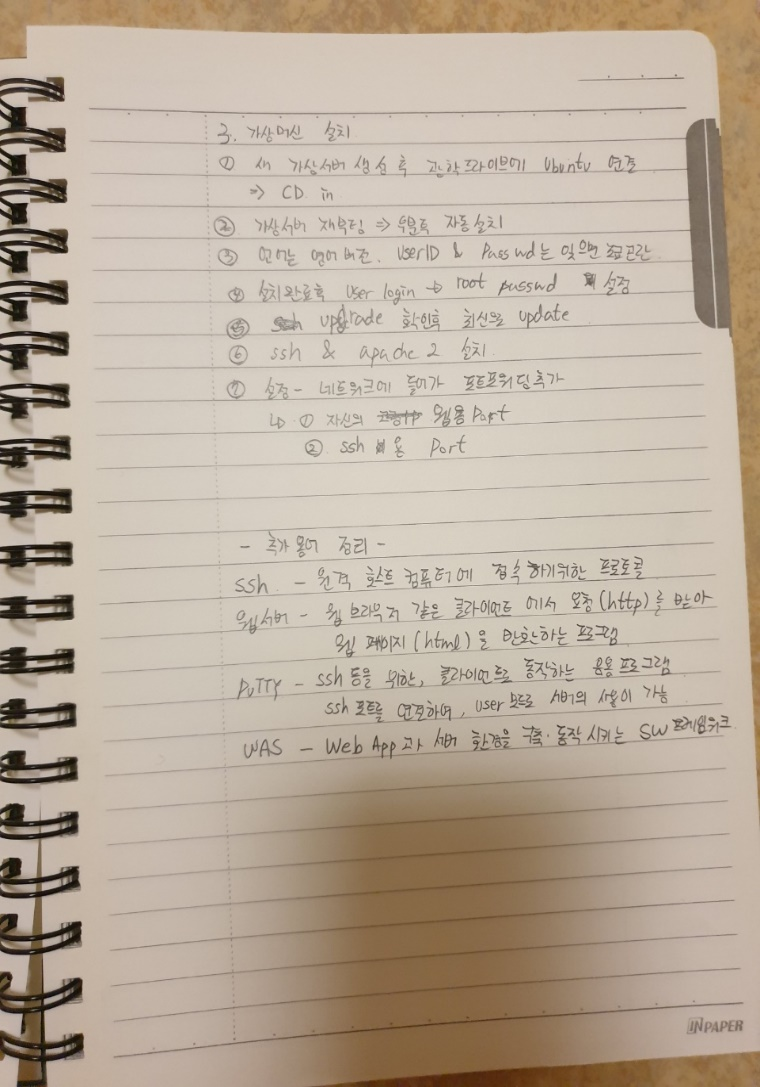 3. 가상머신 설치
① 새 가상서버 생성 후 광학드라이브에 Ubuntu 연결
⇒ CD in
② 가상서버 재부팅 ⇒ 우분투 자동설치
③ 언어는 영어버전. UserID & Passwd는 잊으면 곤란
④ 설치완료후 User login → root passwd 설정
⑤ upgrade 확인후 최신으로 update
⑥ ssh & apache 2 설치
⑦ 설정 - 네트워크에 들어가 포트포워딩추가
↳ ① 자신의 웹용 Port
② ssh 용 Port
- 추가 용어 정리 -
ssh - 원격 호스트 컴퓨터에 접속하기위한 프로토콜
웹서버 - 웹 브라우저 같은 클라이언트에서 요청(http)를 받아
웹 페이지(html)을 반환하는 프로그램
PuTTY - ssh 등을 위한, 클라이언트로 동작하는 응용프로그램
ssh 포트를 연결하여, user 모드로 서버의 사용이 가능
WAS - Web App과 서버 환경을 구축·동작 시키는 SW 프레임워크
INPAPER